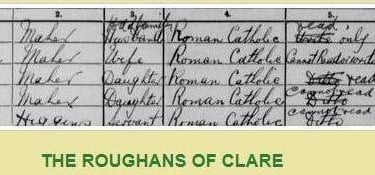 2. 3. 4. 5.
Head of family read
Maher Husband Roman Catholic Write only
Maher Wife Roman Catholic Cannot Read or write
Maher Daughter Roman Catholic Ditto read
Maher Daughter Roman Catholic cannot read Ditto
Higgins Servant Roman Catholic cannot read Ditto
THE ROUGHANS OF CLARE